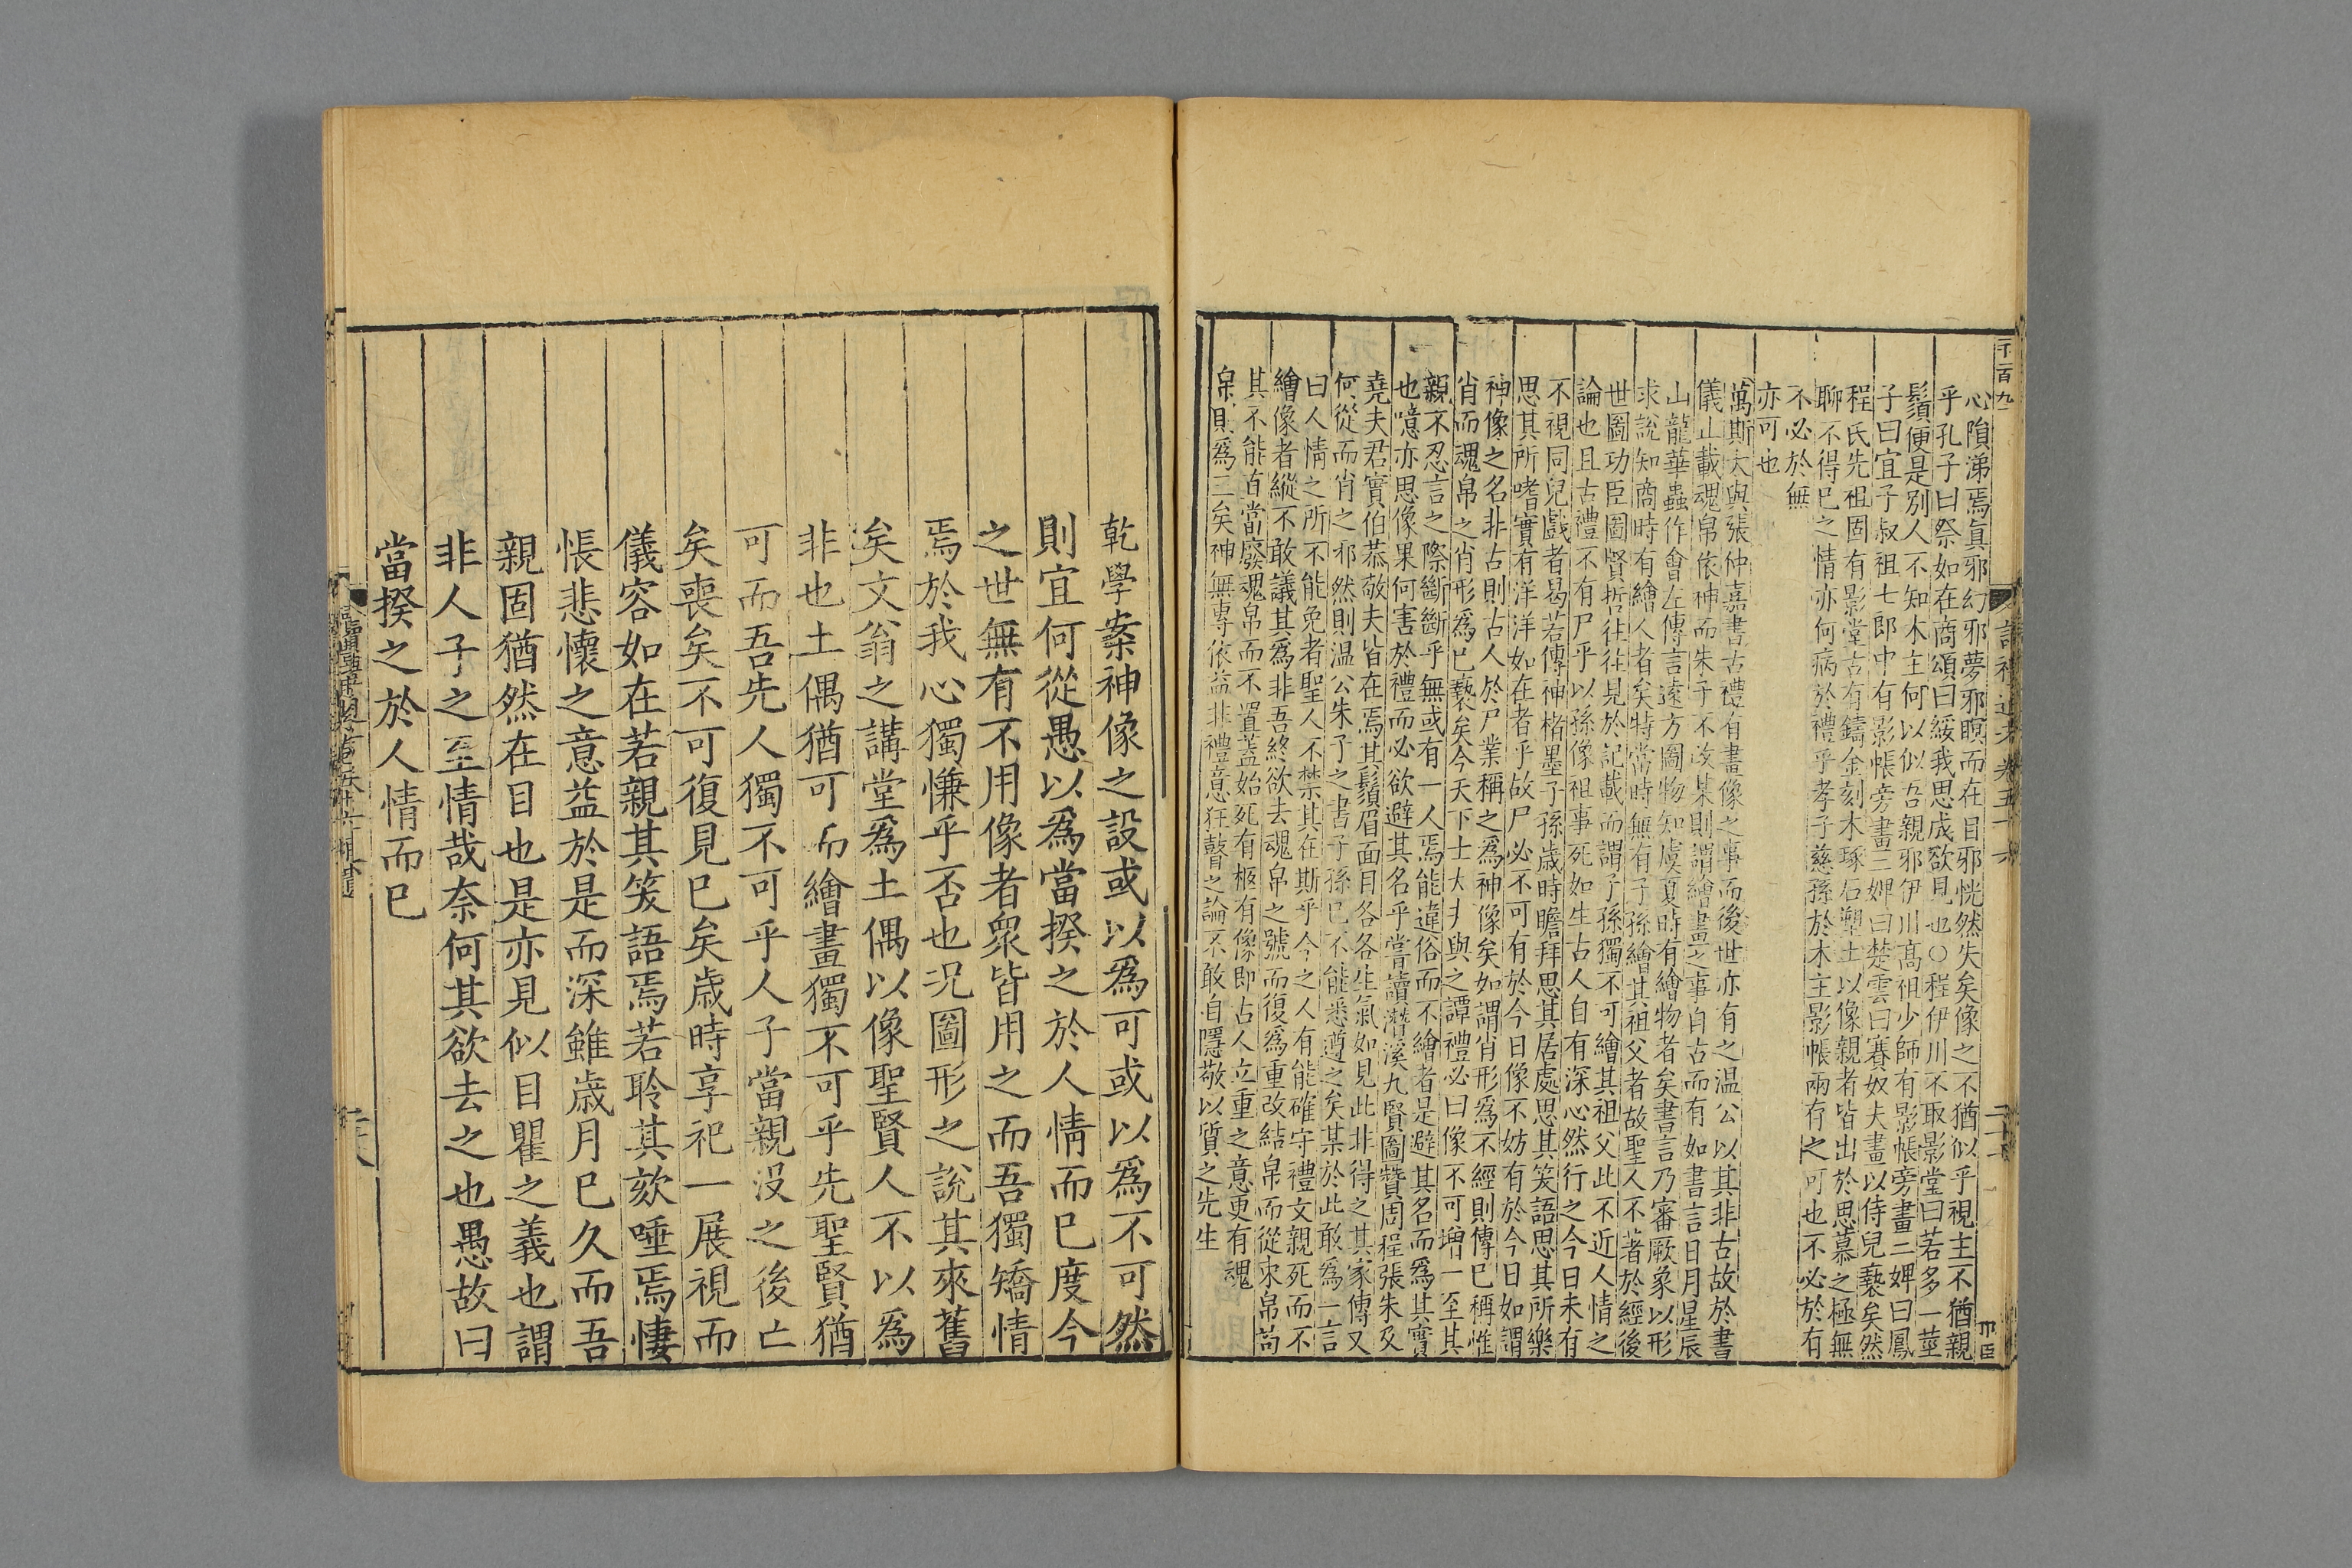 心隕涕焉眞邪幻邪夢邪瞑而在目邪恍然失矣像之不猶似乎視主不猶親
乎孔子曰祭如在商頌曰綏我思成欲見也○程伊川不取影堂曰若多一莖
鬚便是別人不知木主何以似吾親邪伊川高祖少師有影帳旁畫二婢曰鳳
子曰宜子叔祖七郎中有影帳旁畫三婢曰楚雲曰賽奴夫畫以侍兒褻矣然
程氏先祖固有影堂古有鑄金刻木琢石塑土以像親者皆出於思慕之極無
聊不得已之情亦何病於禮乎孝子慈孫於木主影帳兩存之可也不必於有
不必於無
亦可也
萬斯大與張仲嘉書古禮有畫像之事而後世亦有之温公以其非古故於書
儀止載魂帛依神而朱子不改某則謂繪畫之事自古而有如書言日月星辰
山龍華蟲作會左傳言遠方圖物知虞夏時有繪物者矣書言乃審厥象以形
求說知商時有繪人者矣特當時無有子孫繪其祖父者故聖人不著於經後
世圖功臣圖賢哲往往見於記載而謂子孫獨不可繪其祖父此不近人情之
論也且古禮不有尸乎以孫像祖事死如生古人自有深心然行之今日未有
不視同兒戲者曷若傳神楮墨子孫歲時瞻拜思其居處思其笑語思其所樂
思其所嗜實有洋洋如在者乎故尸必不可有於今日像不妨有於今日如謂
神像之名非古則古人於尸業稱之為神像矣如謂肖形為不經則傳已稱惟
肖而魂帛之肖形為已褻矣今天下士大夫與之譚禮必曰像不可增一至其
親不忍言之際斷斷乎無或有一人焉能違俗而不繪者是避其名而為其實
也噫亦思像果何害於禮而必欲避其名乎嘗讀潛溪九賢圖贊周程張朱及
堯夫君實伯恭敬夫皆在焉其鬚眉面目各各生氣如見此非得之其家傳又
何從而肖之邪然則温公朱子之書子孫已不能悉遵之矣某於此敢為一言
曰人情之所不能免者聖人不禁其在斯乎今之人有能確守禮文親死而不
繪像者縱不敢議其為非吾終欲去魂帛之號而復為重改結帛而從束帛苟
其不能直當廢魂帛而不置蓋始死有柩有像即古人立重之意更有魂
帛則為三矣神無專依益非禮意狂瞽之論不敢自隱敬以質之先生
乾學案神像之設或以為可或以為不可然
則宜何從愚以為當揆之於人情而已度今
之世無有不用像者衆皆用之而吾獨矯情
焉於我心獨慊乎否也况圖形之說其來舊
矣文翁之講堂為土偶以像聖賢人不以為
非也土偶猶可而繪畫獨不可乎先聖賢猶
可而吾先人獨不可乎人子當親没之後亡
矣喪矣不可復見已矣歲時享祀一展視而
儀容如在若親其笑語焉若聆其欬唾焉悽
悵悲懷之意益於是而深雖歲月已久而吾
親固猶然在目也是亦見似目瞿之義也謂
非人子之至情哉奈何其欲去之也愚故曰
當揆之於人情而已